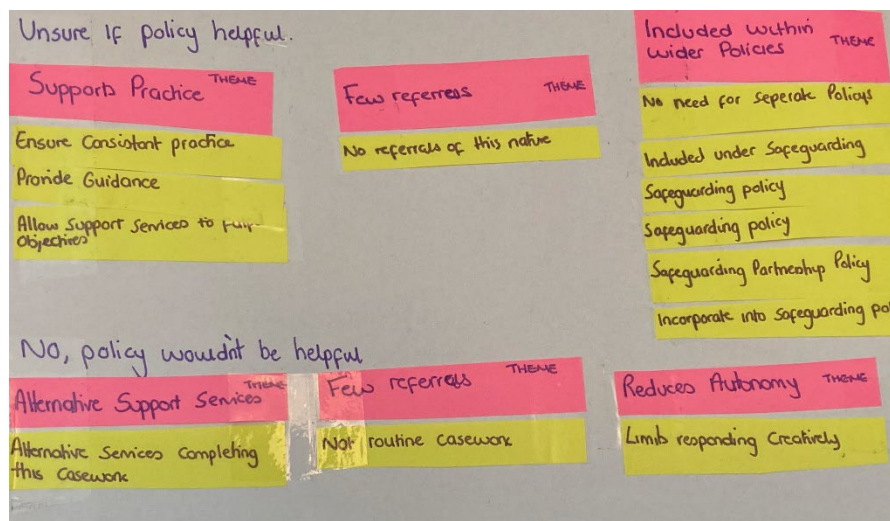 Unsure If policy helpful.
Supports Practice THEME
Ensure Consistant practice
Provide Guidance
Allow Support Services to
Objectives
Few referrals THEME
No referrals of this nature
Included within
wider Policies THEME
No need for seperate Policys
Included under Safeguarding
Safeguarding policy
Safeguarding policy
Safeguarding Partnership Policy
Incorporate into Safeguarding pol
No, policy wouldn't be helpful
Alternative Support Services THEME
Alternative Services Completing
this Casework
Few referrals THEME
Not routine casework
Reduces Autonomy THEME
Limits responding Creatively